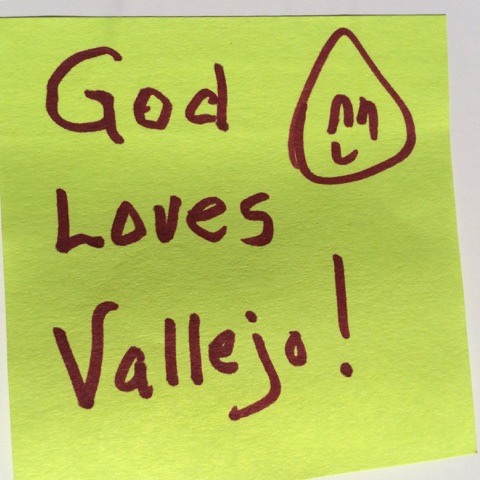 God
Loves
Vallejo!